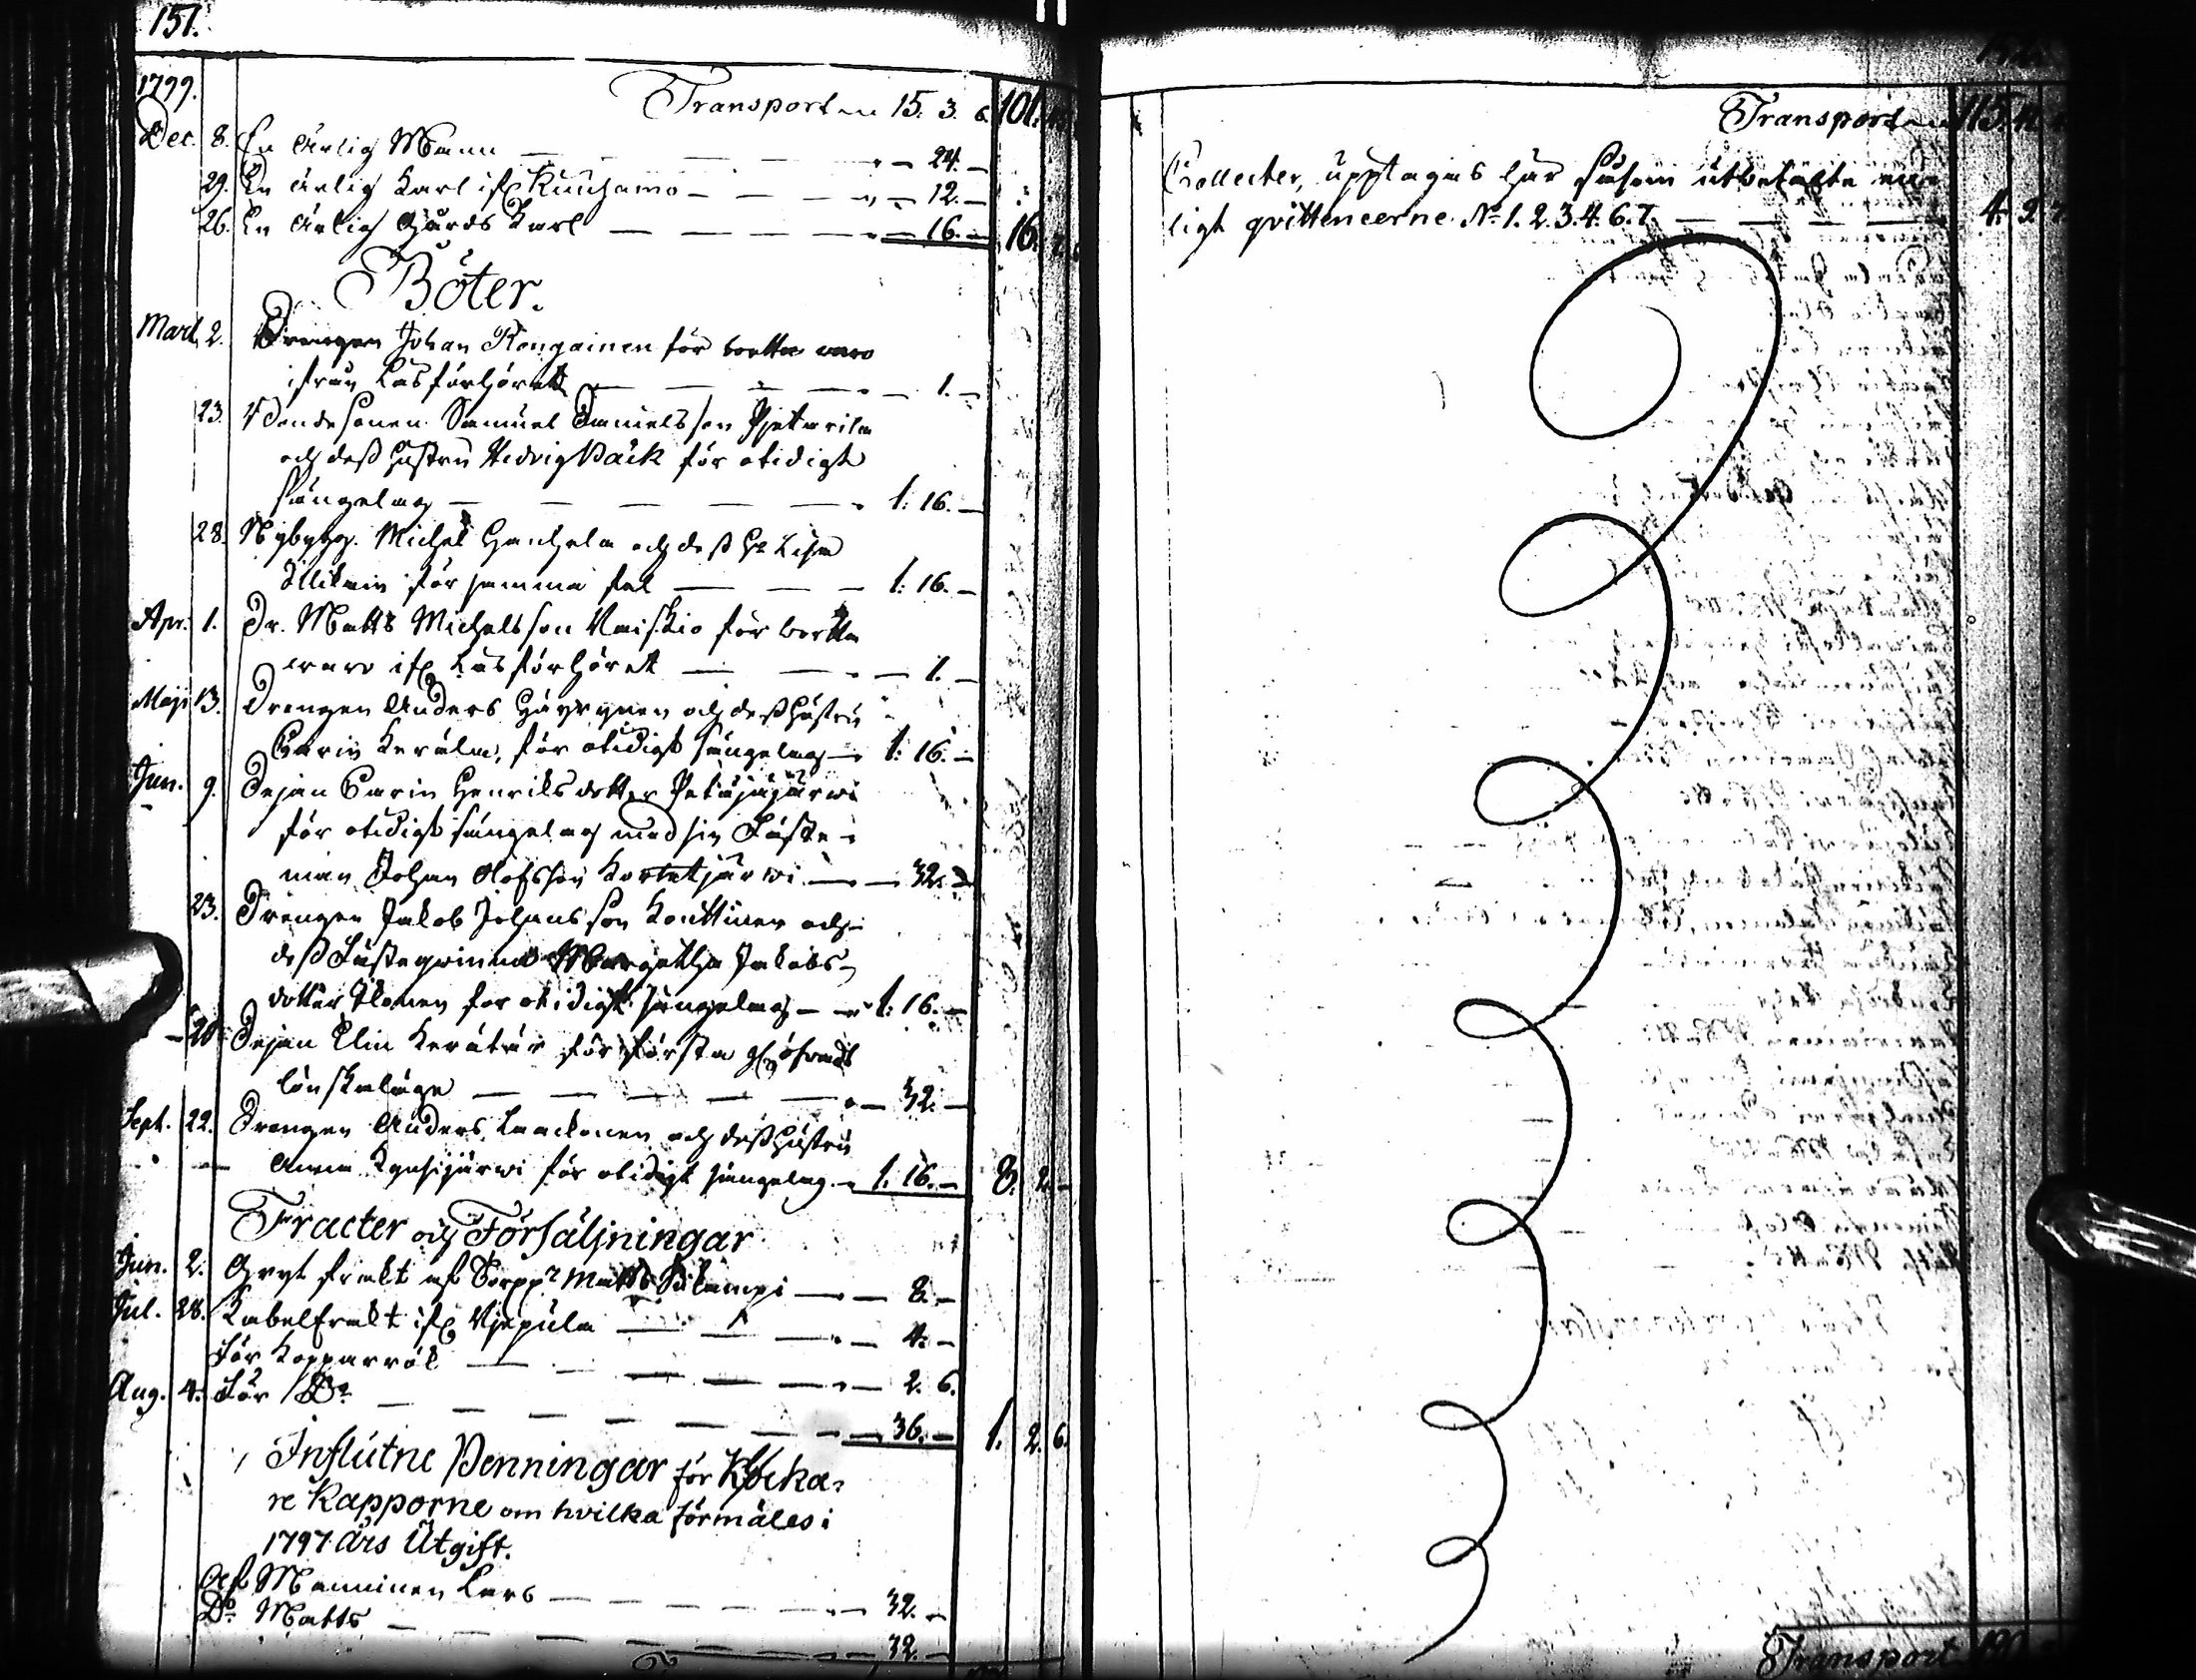 151.
1799. Transport 15. 3. 6. 101.
Dec. 8. En ärlig Mann — 24. —
29. En ärlig Karl ifr. Kuusamo — 12. —
26. En ärlig Gårds Karl — 16. — 16.
Böter.
Mart. 2. Drengen Johan Rongainen för bortta varo
ifrån Läsförhöret — 1. —
23. Bondesonen Samuel Danielsson Pjetarila
och dess hustru Hedvig Bäck för otidigt
sängelag — 1: 16. —
28. Nybygg. Michel och dess H. Lisa
för samma fel — 1: 16. —
Apr. 1. Dr. Matts Michelsson Vaiskio för bortta
waro ifr. Läsförhöret — 1. —
Maji 13. Drengen Anders Häyrynen och dess hustru
Carin Kerälä, för otidigt sängelag — 1: 16. —
Jun. 9. Pejan Carin Henriksdotter Petäjäjärwi
för otidigt sängelag med sin Fäste-
man Johan Olofsson Kortetjärwi — 32. —
23. Drengen Jakob Johansson Kouttinen och
dess Fästeqwinna Margetha Jakobs-
dotter Ilonen för otidigt sängelag — 1: 16. —
28. Pejan Elin Keränär för första
lönskaläge — 32. —
Sept. 22. Drengen Anders Laackonen och dess hustru
Anna för otidigt sängelag — 1. 16. — 8. 2. —
Fracter och Försäljningar
Jun. 2. Gryt frakt af Matts — 8. —
Jul. 28. Kabelfrakt ifr. — 4. —
För Kopparrök — 2. 6.
Aug. 4. För Do — 36. — 1. 2. 6.
Influtne Penningar för Klocka-
re Kapporne om hvilka förmäles i
1797 års Utgift.
Af Manninen Lars — 32. —
Do Matts — 32. —
Transport 115.
Collecter, upptagas här såsom utbetalte en-
ligt qvittencerne. No. 1. 2. 3. 4. 6. 7. — 4. 2
Transport